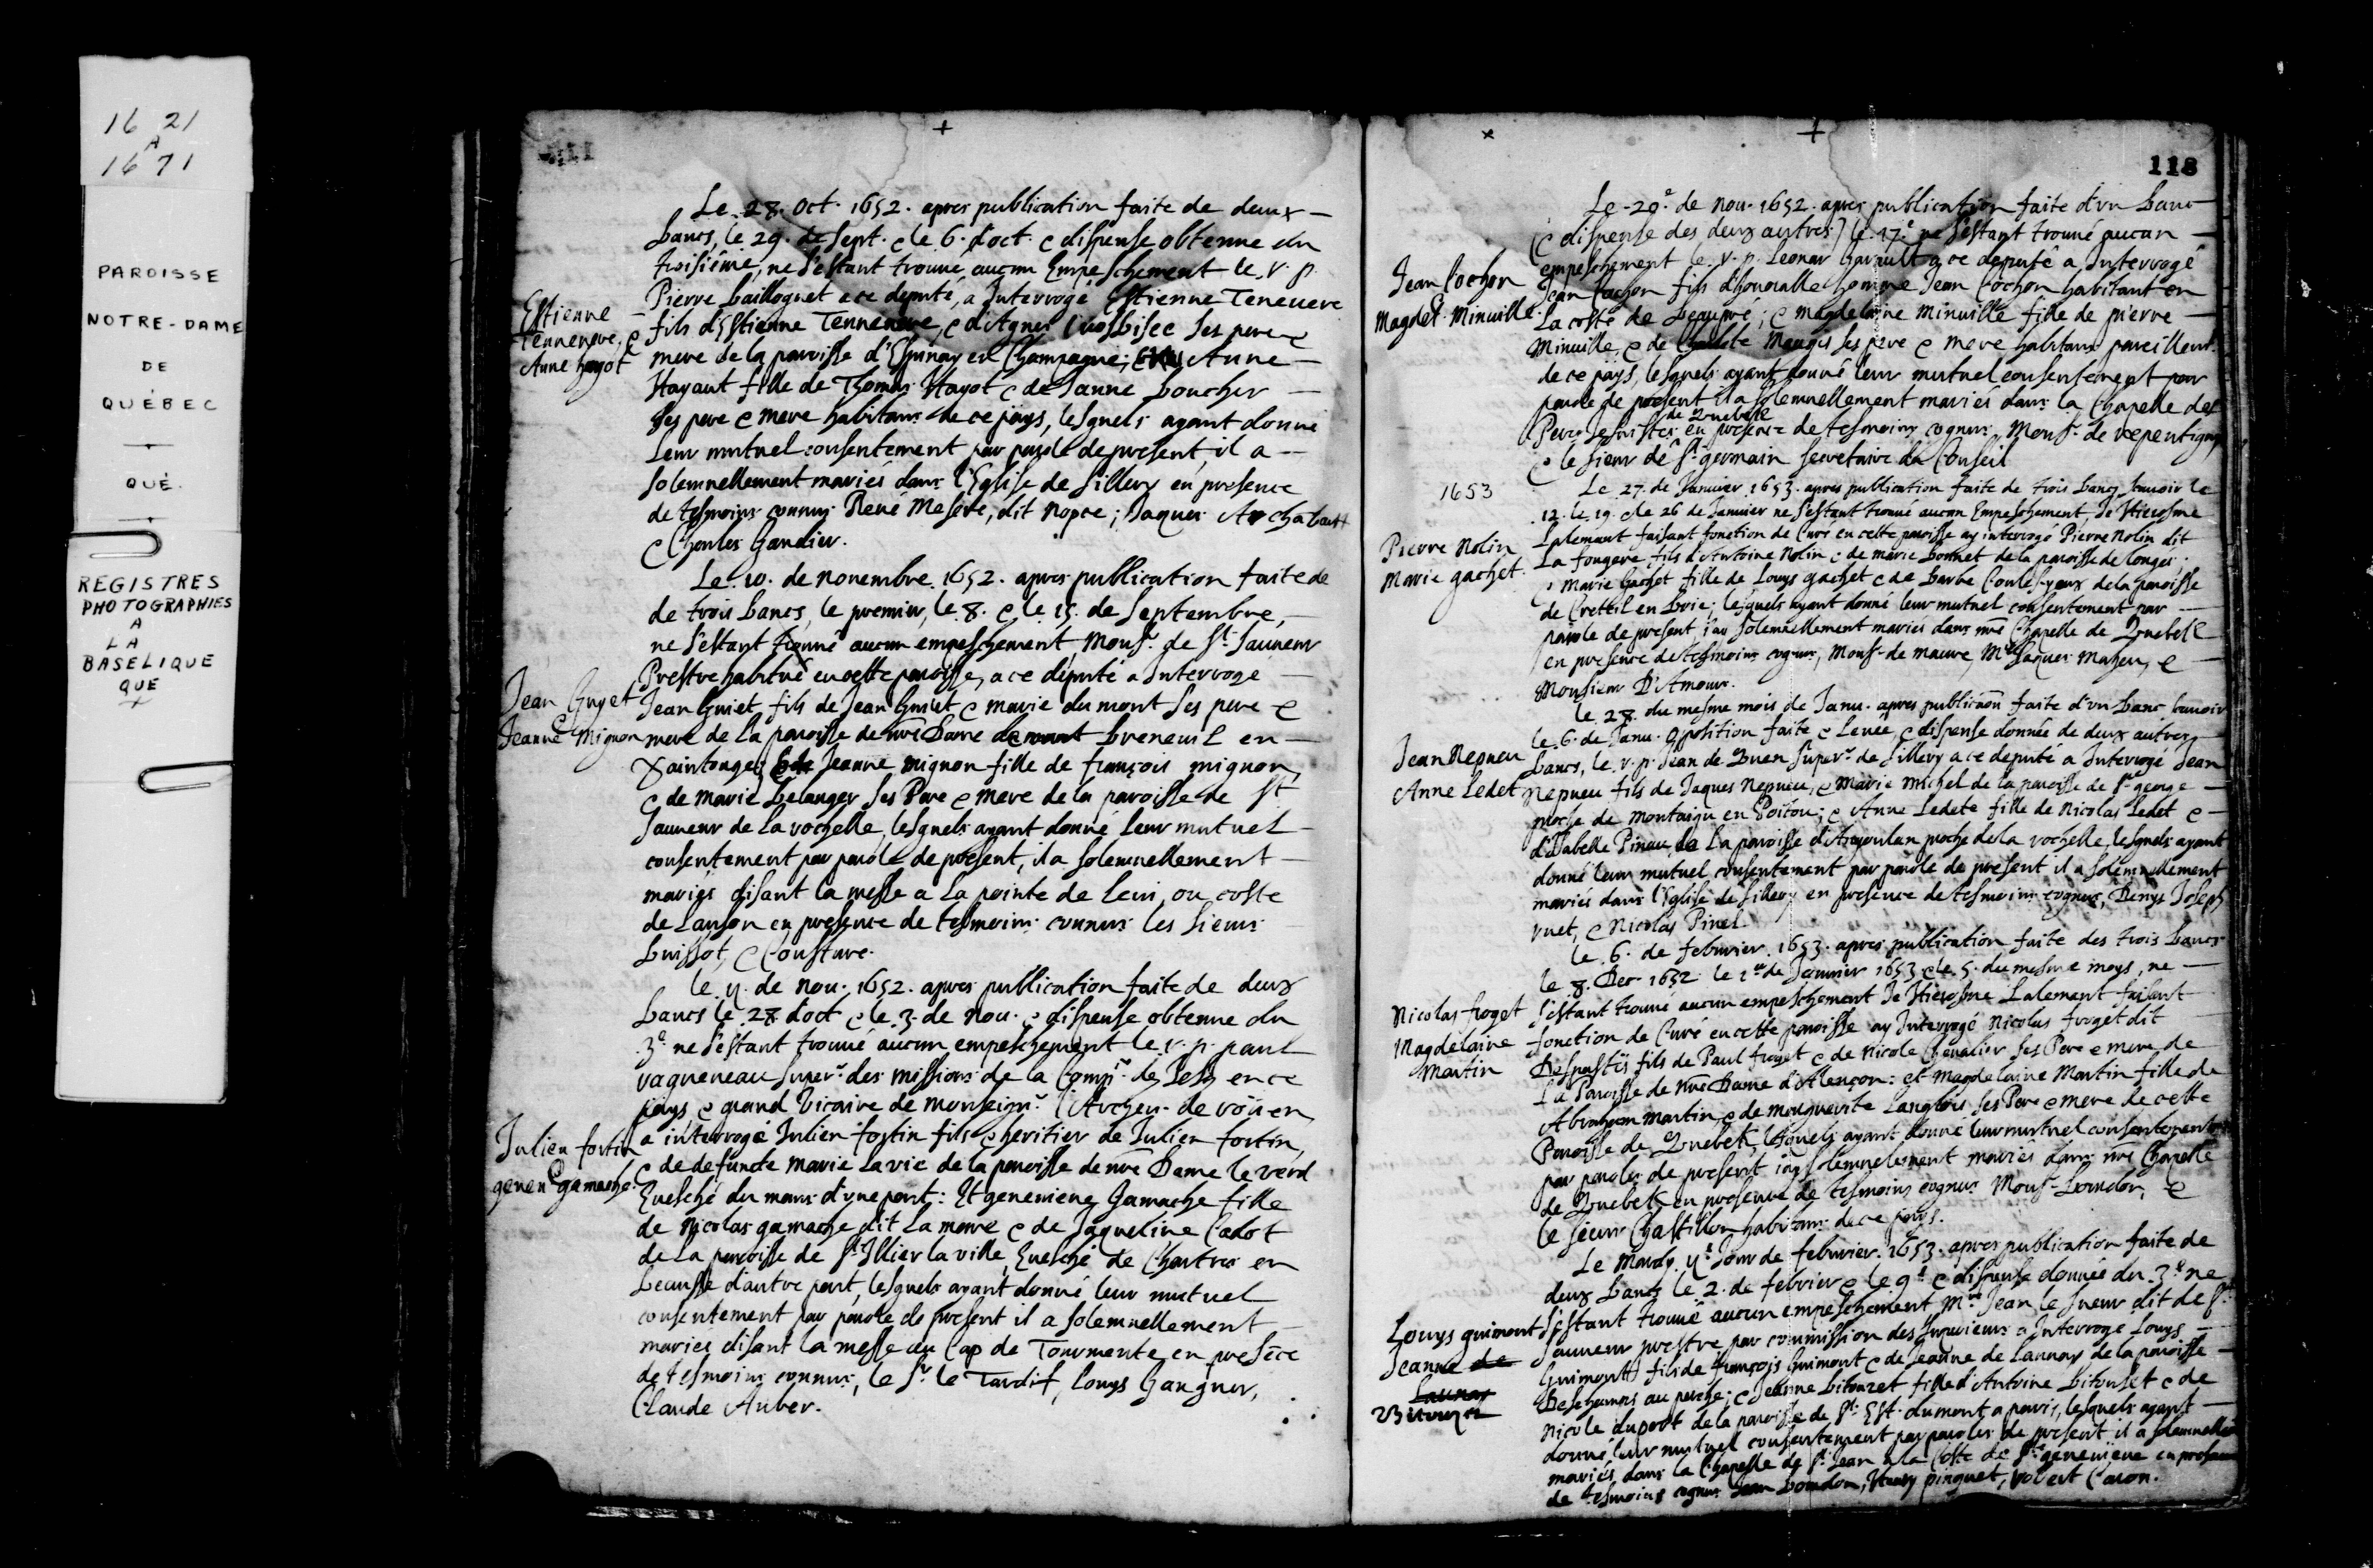 1621
A
1671
PAROISSE
NOTRE-DAME
DE
QUÉBEC
QUÉ.
REGISTRES
PHOTOGRAPHIES
A
LA
BASELIQUE
QUE
Le 28. Oct. 1652. apres publication faite de deux
bancs, le 29. de Sept. e le 6. d'oct. e dispense obtenue du
troisiéme, ne s'estant trouué aucun Empeschement le r. p.
Estienne
Tenneneve, e
Anne hayot
Pierre bailloquet a ce deputé, a Interrogé Estienne Teneuere
fils d'Estienne Tenneneve, e d'Agnes ses pere e
mere de la paroisse d'Espinay en Champagne; Anne
Hayaut fille de Thomas Hayot e de Janne boucher
ses pere e mere habitans de ce pays, lesquels ayant donné
leur mutuel consentement par parole de present, il a
solemnellement mariés dans l'Eglise de Sillery en presence
de tesmoins connus René Mesere, dit nopce; Jaques Archabaut
e Charles Gaudier.
Le 10. de novembre 1652. apres publication faite de
de trois bancs, le premier, le 8. e le 15. de Septembre,
ne s'estant trouué aucun empeschement Monsr. de St. Sauueur
Prestre habitué en cette paroisse, a ce député a Interrogé
Jean Guyet
e
Jeanne Mignon
Jean Guiet fils de Jean Guiet e marie du mont ses pere e
mere de la paroisse de nre Dame breneuil en
Xaintonge; Jeanne mignon fille de françois mignon,
e de marie belanger ses Pere e mere de la paroisse de St
Sauueur de la rochelle, lesquels ayant donné leur mutuel
consentement par parole de present, il a solemnellement
mariés disant la messe a la pointe de leui, ou coste
de Lauson en presence de tesmoins connus les sieurs
buissot, e Cousture.
le 11. de nou. 1652. apres publication faite de deux
bancs le 28 d'oct e le 3. de nou. e dispense obtenue du
3e ne s'estant trouué aucun empeschement le r. p. paul
ragueneau superr. des missions de la Compe. de Jesus en ce
pays e grand Vicaire de monseignr. l'Archeu. de roüen
Julien fortin
e
geneu gamache.
a interrogé Julien fortin fils e heritier de Julien fortin,
e de defuncte marie lavie de la paroisse de nre Dame le verd
Euesché du mans d'une part: Et geneuiene Gamache fille
de Nicolas gamache dit la mare e de Jaqueline Cadot
de la paroisse de St Illier la ville, Euesché de Chartres en
beausse d'autre part, lesquels ayant donné leur mutuel
consentement par parole de present il a solemnellement
mariés disant la messe au Cap de Tourmente en presēce
de tesmoins connus, le Sr. le Tardif, Louys Gaugner,
Claude Auber.
118
Le 20e de nou. 1652. apres publication faite d'vn banc
(e dispense des deux autres) le 17e ne s'estant trouué aucun
empeschement le r. p. Leonar Garault a ce deputé a Interrogé
Jean Cochon
e
Magdel. Minuille
Jean Cochon fils d'honorable homme Jean Cochon habitant en
la coste de beaupré; e magdelaine minuille fille de pierre
minuille, e de Mauges ses pere e mere habitans pareillemt.
de ce pays, lesquels ayant donné leur mutuel consentement par
parole de present il a solemnellement mariés dans la Chapelle des
de Quebek
Peres Jesuistes en presence de tesmoins cognus, Monsr. de repentigny
e le sieur de St. germain secretaire du Conseil
1653
Le 27. de Januier 1653. apres publication faite de trois bancs scauoir le
12. le 19. e le 26 de Januier ne s'estant trouué aucun Empeschement, Je Hierosme
Pierre Nolin
Marie gachet.
Lalemant faisant fonction de Curé en cette paroisse ay interrogé Pierre Nolin dit
la fougere fils d'Antoine Nolin e de marie bonnet de la paroisse de longes;
e Marie Gachet fille de Louys gachet e de barbe de la paroisse
de Creteil en brie; lesquels ayant donné leur mutuel consentement par
parole de present j'ay solemnellement mariés dans nre Chapelle de Quebek
en presence de tesmoins cognus, Monsr. de mauve, Mr Jaques Maheu, e
Monsieur D'Amours.
le 28. du mesme mois de Janu. apres publicaōn faite d'vn banc scauoir
le 6. de Janu. opposition faite e leuée, e dispense donnée de deux autres
Jean Nepueu
Anne Ledet
bancs, le r. p. Jean de Quen Superr. de Sillery a ce deputé a Interrogé Jean
Nepueu fils de Jaques Nepueu, e Marie michel de la paroisse de St. george
proche de montaigu en Poitou; e Anne Ledete fille de Nicolas Ledet e
d'Isabelle Pineau, de la paroisse d'Angoulin proche de la rochelle, lesquels ayant
donné leur mutuel consentement par parole de present il a solemnellement
mariés dans l'Eglise de Sillery en presence de tesmoins cognus, Denys Joseph
ruet, e Nicolas Pinel.
le 6. de februier. 1653. apres publication faite des trois bancs
le 8. Dec. 1652. le 1er de Januier 1653 e le 5. du mesme moys, ne
Nicolas froget
Magdelaine
Martin
s'estant trouué aucun empeschement Je Hierosme Lalemant faisant
fonction de Curé en cette paroisse ay Interrogé Nicolas froget dit
Despastis fils de Paul froget e de Nicole Cheualier ses Pere e mere de
la Paroisse de Nre Dame d'Alençon: et Magdelaine Martin fille de
Abraham Martin, e de marguerite Langlois ses Pere e mere de cette
Paroisse de Quebek, lesquels ayant donné leur mutuel consentement
par paroles de present j'ay solemnellement mariés dans nre Chapelle
de Quebek en presence de tesmoins cognus Monsr. bourdon, e
le sieur Chastillon habitans de ce pays.
Le mardy 11e Jour de februier. 1653. apres publication faite de
deux bancs le 2. de febrier e le 9e e dispense donnée du 3e ne
Louys guimont
Jeanne de
Launay
Bitouzet
s'estant trouué aucun empeschement Mre Jean le sueur dit de St.
Sauueur prestre par commission des superieurs a Interrogé Louys
Guimont fils de François Guimont e de Jeanne de Launay de la paroisse
Deschamps au perche; e Jeanne bitouzet fille d'Antoine bitouset e de
Nicole duport de la paroisse de St. Est. du mont a paris, lesquels ayant
donné leur mutuel consentement par paroles de present il a solemnellemt
mariés dans la Chapelle de St. Jean a la Coste de Ste geneuieue en presence
de tesmoins cognus Jean bourdon, Henry pinguet, robert Caron.